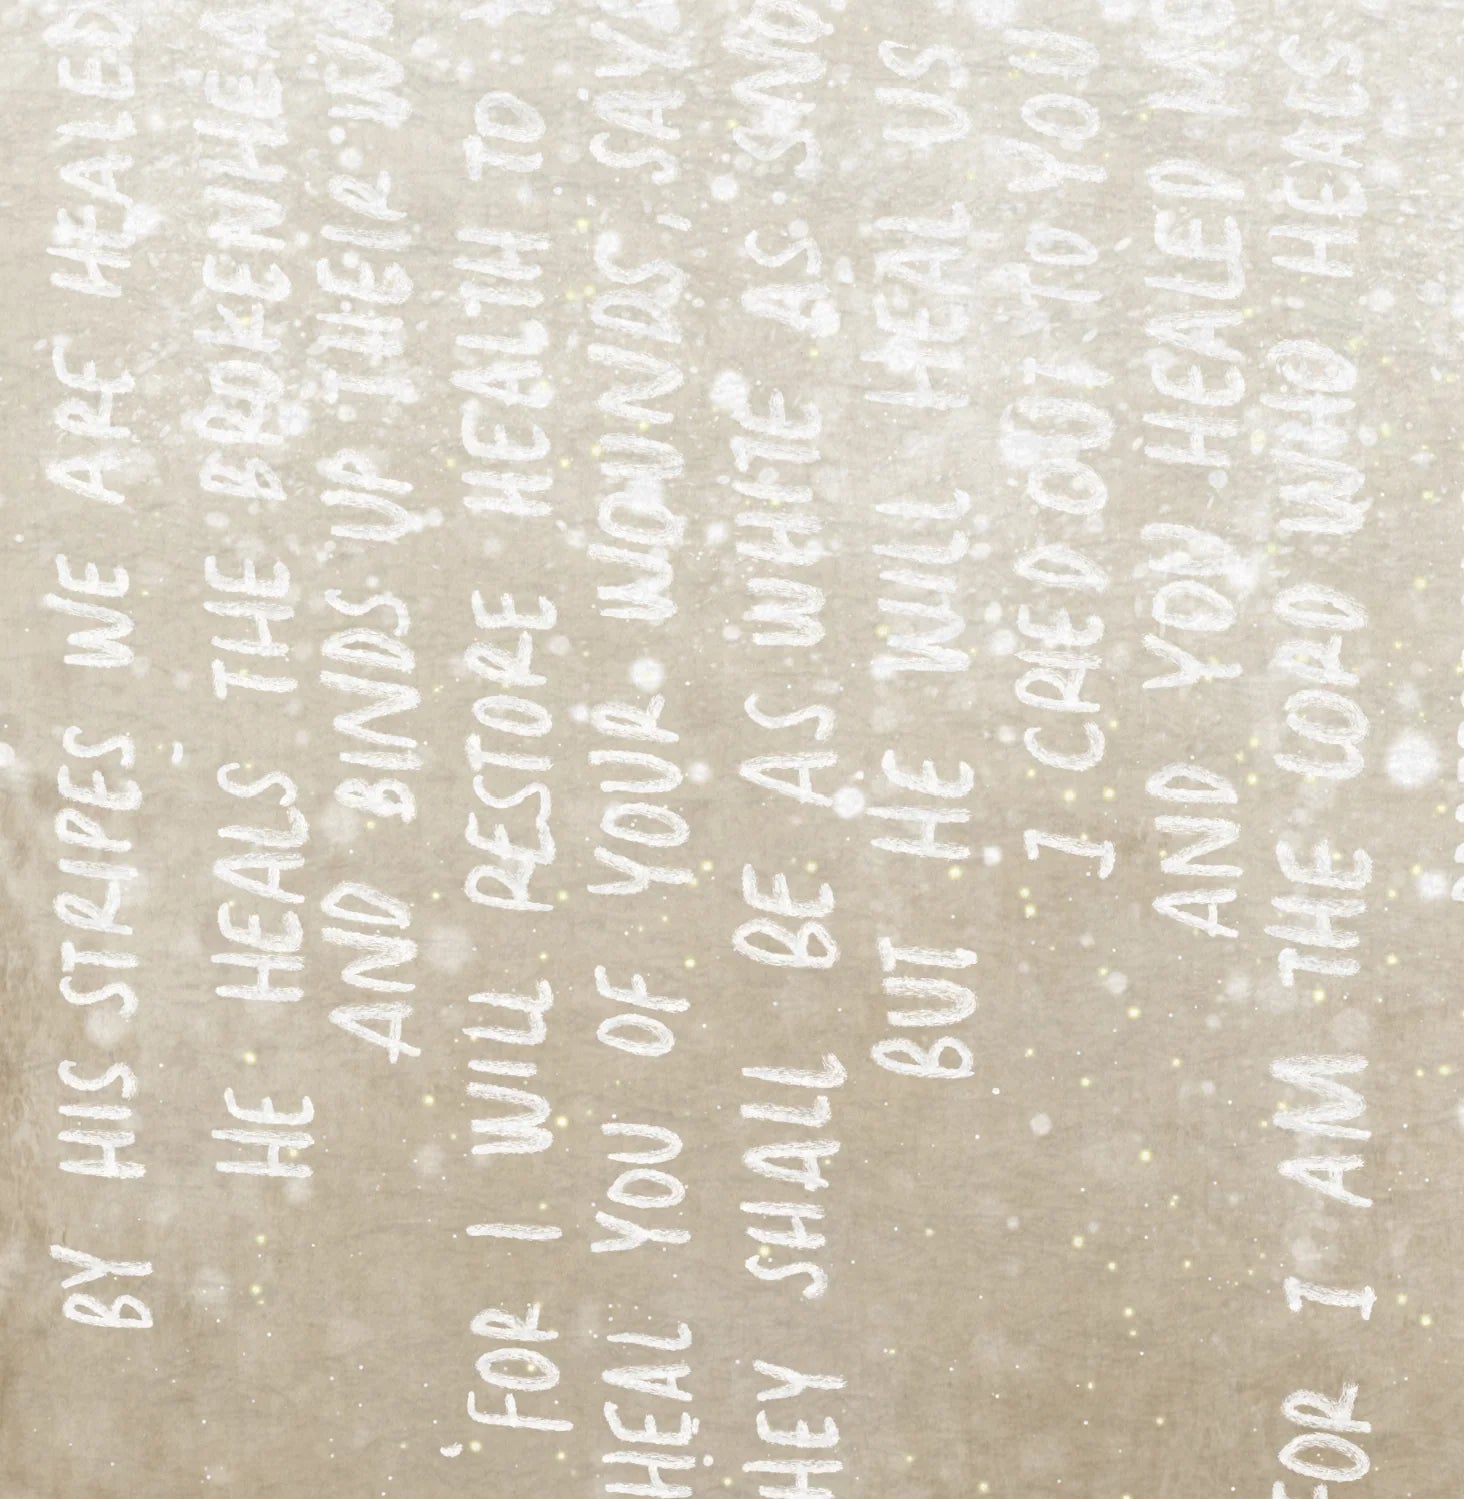 BY HIS STRIPES WE ARE HEALED
HE HEALS THE BROKENHEA
AND BINDS UP THEIR WO
FOR I WILL RESTORE HEALTH TO
HEAL YOU OF YOUR WOUNDS, SAY
HEY SHALL BE AS WHITE AS SNO
BUT HE WILL HEAL US
I CRIED OUT TO YOU
AND YOU HEALED
FOR I AM THE LORD WHO HEALS